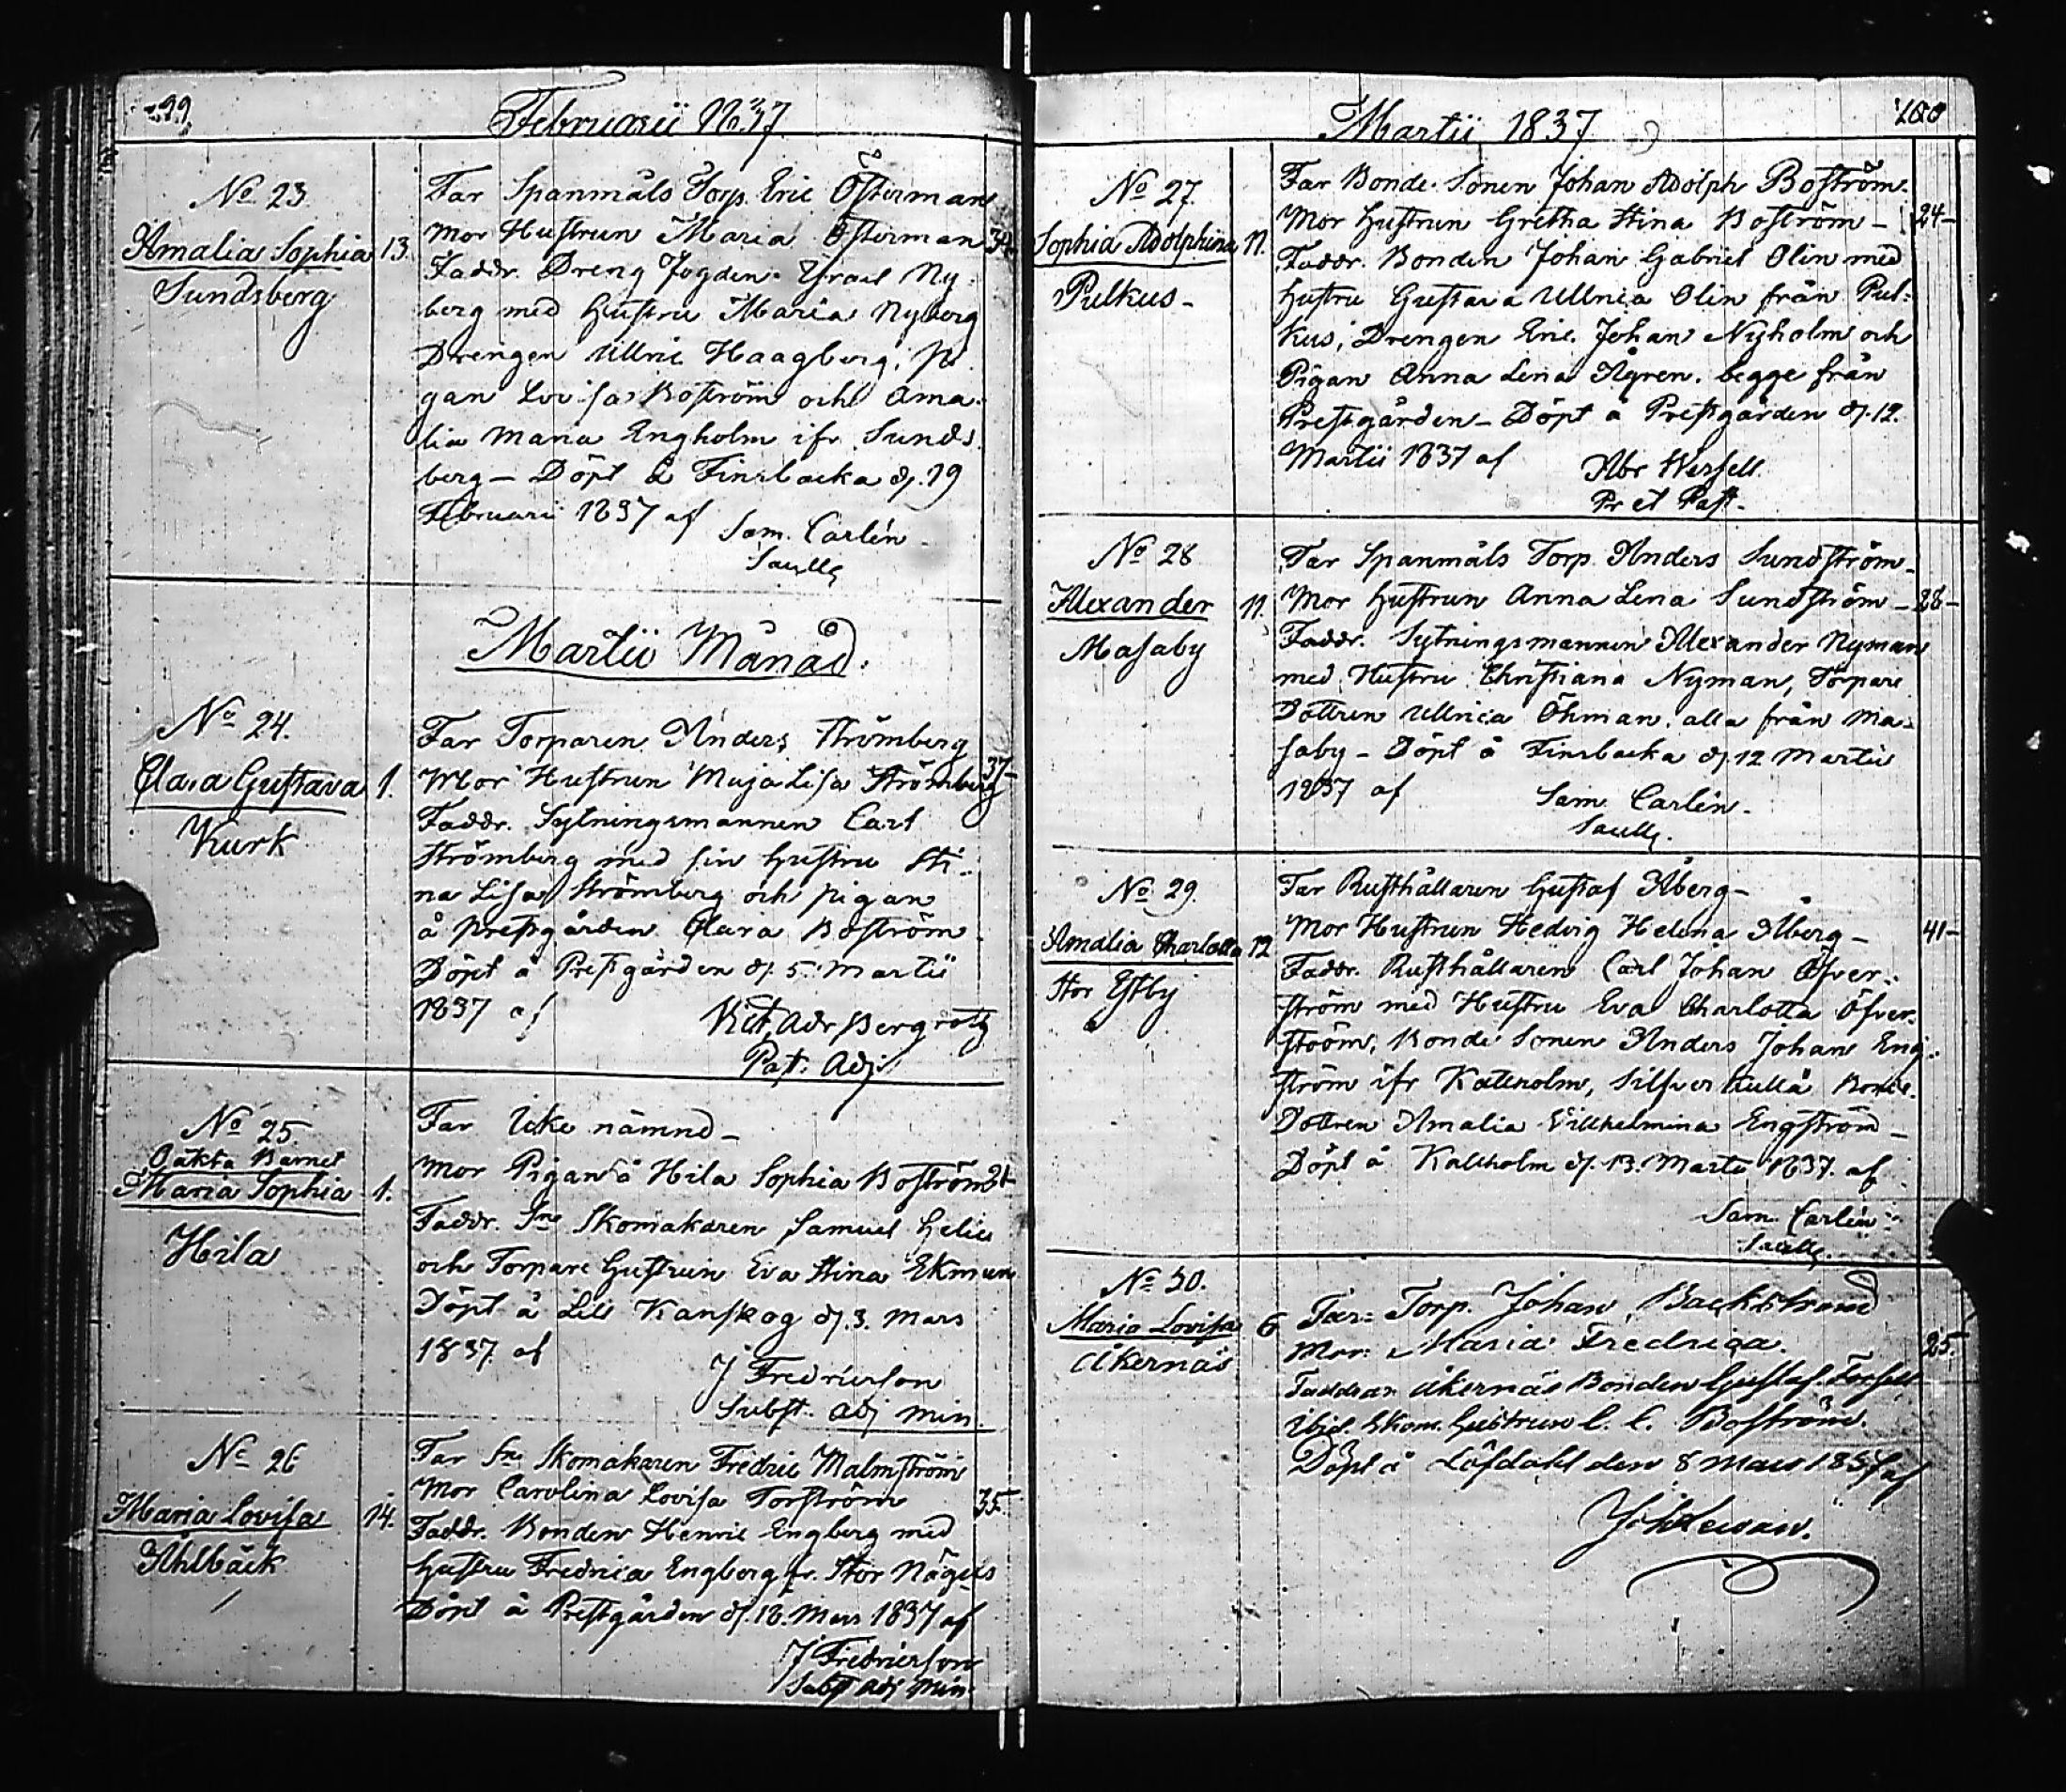 99
Februarii 1837
No 23.
Amalia Sophia 13.
Sundsberg
Far Spanmåls Torp. Eric Österman
Mor Hustrun Maria Österman 34
Faddr. Dreng Fogden Israel Ny
berg med hustru Maria Nyberg
Drengen Ullric Haagberg, Pi
gan Lovisa Boström och Ama
lia Maria Engholm ifr Sunds
berg – Döpt å Finsbacka d. 19
Februarii 1837 af
Sam. Carlén
Martii Månad.
No 24.
Clara Gustava 1.
Kurk
Far Torparen Anders Strömberg
Mor Hustrun Maja Lisa Strömberg 37–
Faddr. Sytningsmannen Carl
Strömberg med sin hustru Sti-
na Lisa Strömberg och pigan
å prestgården Clara Boström
Döpt å Prestgården d. 5. Martii
1837 af
Adr Bergroth
Past. Adj.
No 25.
Oäkta Barnet
Maria Sophia 1.
Hila
Far Icke nämnd –
Mor Pigan å Hila Sophia Boström
Faddr. Sne Skomakaren Samuel Helin
och Torpare Hustrun Eva Stina Ekman
Döpt å Lill Kanskog d. 3. Mars
1837. af
J Fredricson
Subst. Adj Min.
No 26
Maria Lovisa 14.
Ahlbäck
Far Sne Skomakaren Fredric Malmström
Mor Carolina Lovisa Torström 35.
Faddr. Bonden Henric Engberg med
hustru Fredrica Engberg fr. Stor Nägels
Döpt å Prestgården d. 18. Mars 1837 af
J Fredricson
Subst Adj Min.
200
Martii 1837
No 27.
Sophia Adolphina 11.
Pulkus –
Far Bonde Sonen Johan Adolph Boström
Mor Hustrun Gretha Stina Boström – 24–
Faddr. Bonden Johan Gabriel Olin med
hustru Gustava Ullrica Olin från Pul-
kus, Drengen Eric Johan Nyholm och
Pigan Anna Lena Ågren. begge från
Prestgården – Döpt å Prestgården d. 12.
Martii 1837 af
Abr Wersell
Pr et Past.
No 28
Alexander 11.
Masaby
Far Spanmåls Torp. Anders Sundström –
Mor hustrun Anna Lena Sundström – 28–
Faddr. Sytningsmannen Alexander Nyman
med Hustru Christiana Nyman, Torpare
Dottren Ullrica Öhman. alla från Ma-
saby – Döpt å Finsbacka d. 12 Martii
1837 af
Sam. Carlén.
No 29.
Amalia Charlotta 12
Stor Estby
Far Rusthållaren Gustaf Åberg –
Mor Hustrun Hedvig Helena Åberg – 41–
Faddr. Rusthållaren Carl Johan Öfver-
ström med Hustru Eva Charlotta Öfver-
ström, Bonde Sonen Anders Johan Eng-
ström ifr Kallholm, Silfverkulla Bonde
Dottren Amalia Villhelmina Engström –
Döpt å Kallholm d. 13. Martii 1837. af
Sam. Carlén
No 30.
Maria Lovisa 6
Åkernäs
Far: Torp. Johan Backstrand
Mor: Maria Fredrica. 25.
Faddrar: Åkernäs Bonden Gustaf Forsell
ibid. Skom. hustrun C. C. Boström.
Döpt å Löfdahl den 8 Mars 1837 af